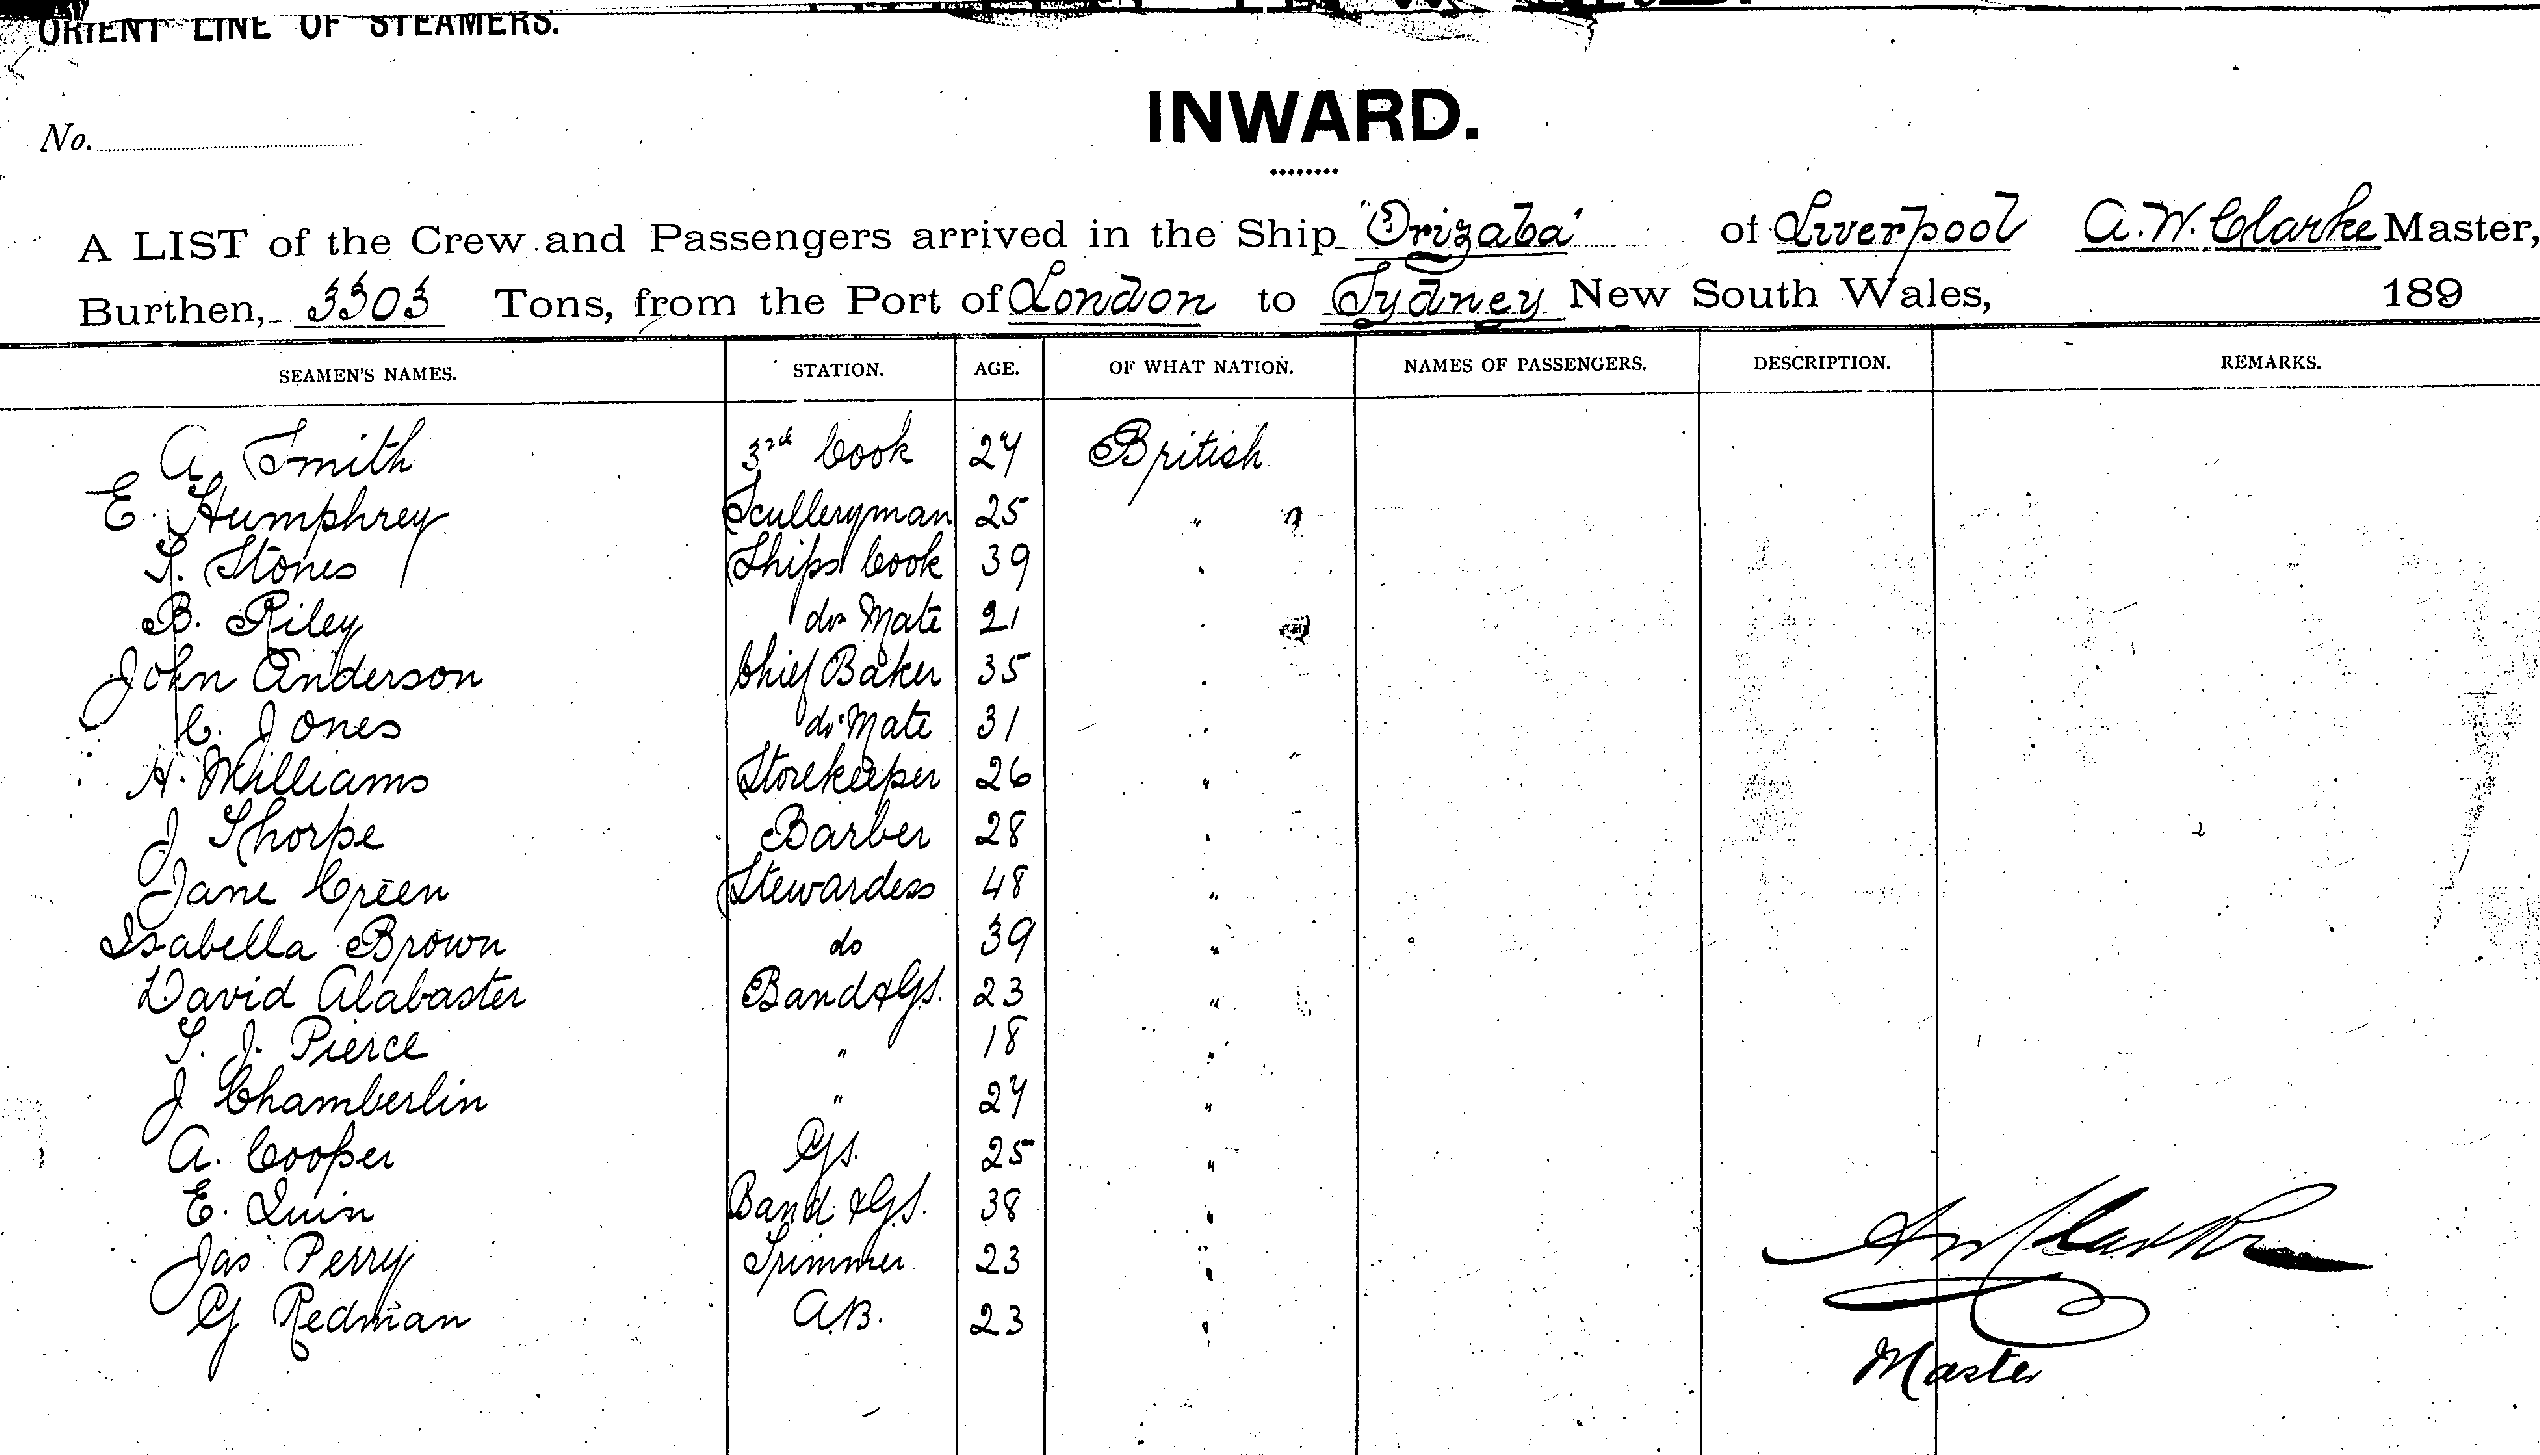 ORIENT LINE OF STEAMERS.
INWARD.
No.
A LIST of the Crew and Passengers arrived in the Ship "Orizaba" of Liverpool A. W. Clarke Master,
Burthen, 3303 Tons, from the Port of London to Sydney New South Wales, 189
SEAMEN'S NAMES. STATION. AGE. OF WHAT NATION. NAMES OF PASSENGERS. DESCRIPTION. REMARKS.
A. Smith 3rd Cook 27 British
E. Humphrey Sculleryman 25 "
S. Stones Ships Cook 39 "
B. Riley do Mate 21 "
John Anderson Chief Baker 35 "
C. Jones do Mate 31 "
H. Williams Storekeeper 26 "
J Thorpe Barber 28 "
Jane Green Stewardess 48 "
Isabella Brown do 39 "
David Alabaster Band & GS. 23 "
S. J. Pierce " 18 "
J Chamberlin " 27 "
A. Cooper GS. 25 "
E. Quin Band & GS. 38 "
Jas Perry Trimmer 23 "
G Redman A.B. 23 "
AW Clarke
Master